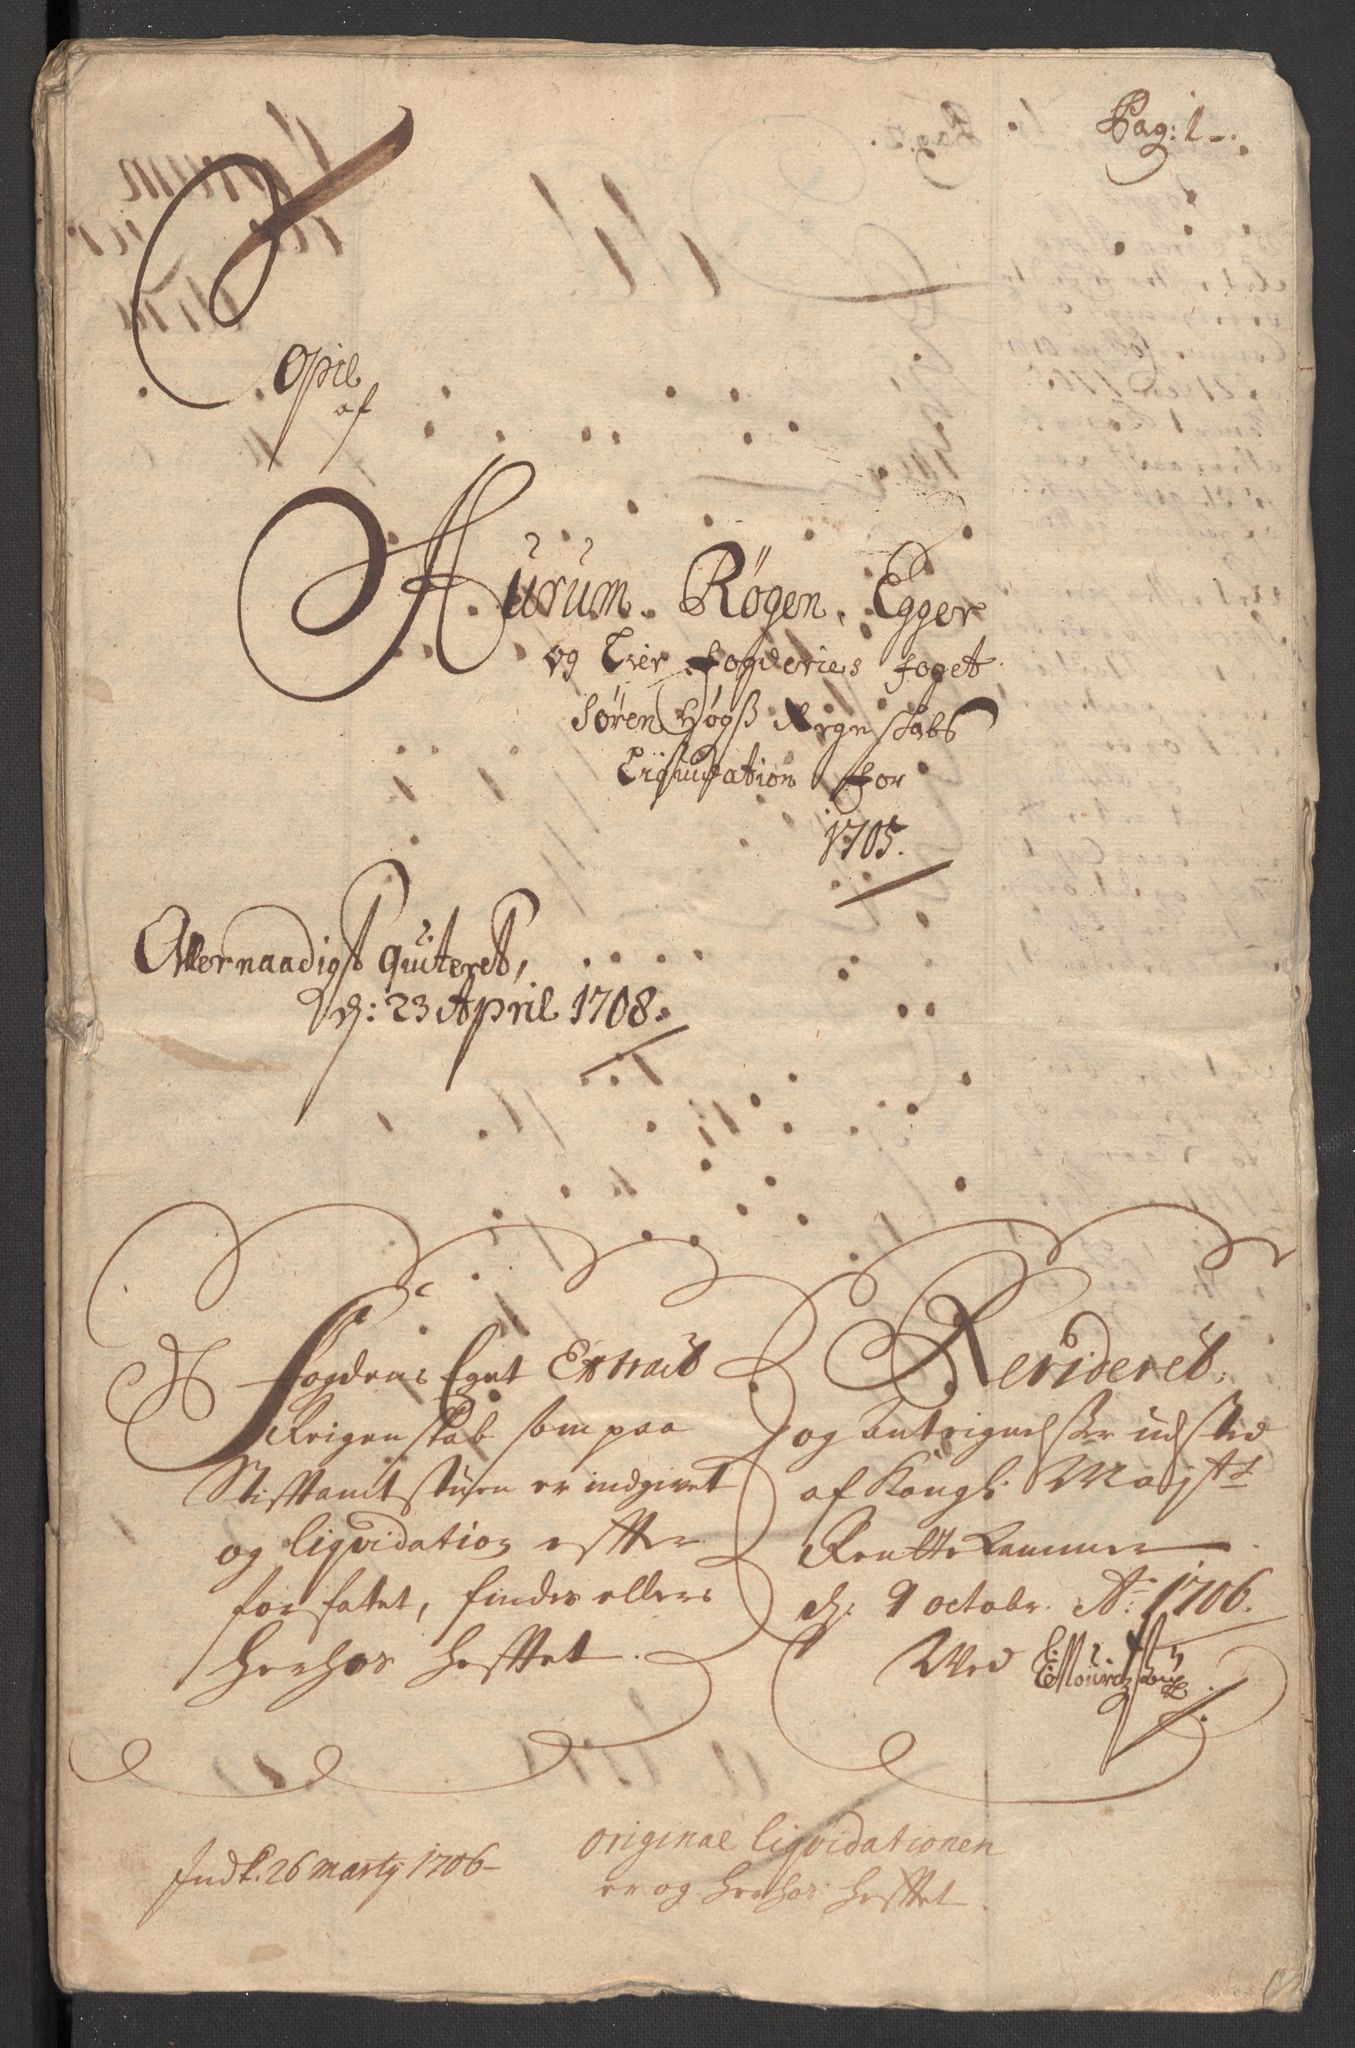 Pag: 1
Copie
af
Hurum. Røgen. Egger
og Lier fogderies foget
Søren Høgß Regnskabs
Liqvidation for
1705.
Allernaadigst quiteret,
d: 23 April 1708.
Fogdens Eget Extract
Reigenskab som paa
Stifftamtstuen er indgivet
og liqvidation effter
forfatet, findes ellers
herhos hefftet.
Revideret,
og antegnelßer udsted
af Kongl: Mayts
Rentte Cammer
d. 9 octobr. Ao: 1706.
Ved
Indk. 26 martij 1706
original liqvidationen
er og herhos hefftet.